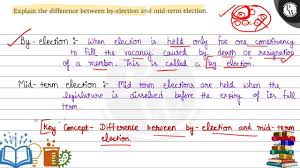 Explain the difference between by-election and mid-term election.
By - election :- When election is held only for one constituency
to fill the vacancy caused by death or resignation
of a member. This is called a by election.
Mid - term election :- Mid term elections are held when the
legislature is dissolved before the expiry of its full
term.
Key Concept - Difference between by-election and mid-term
election.